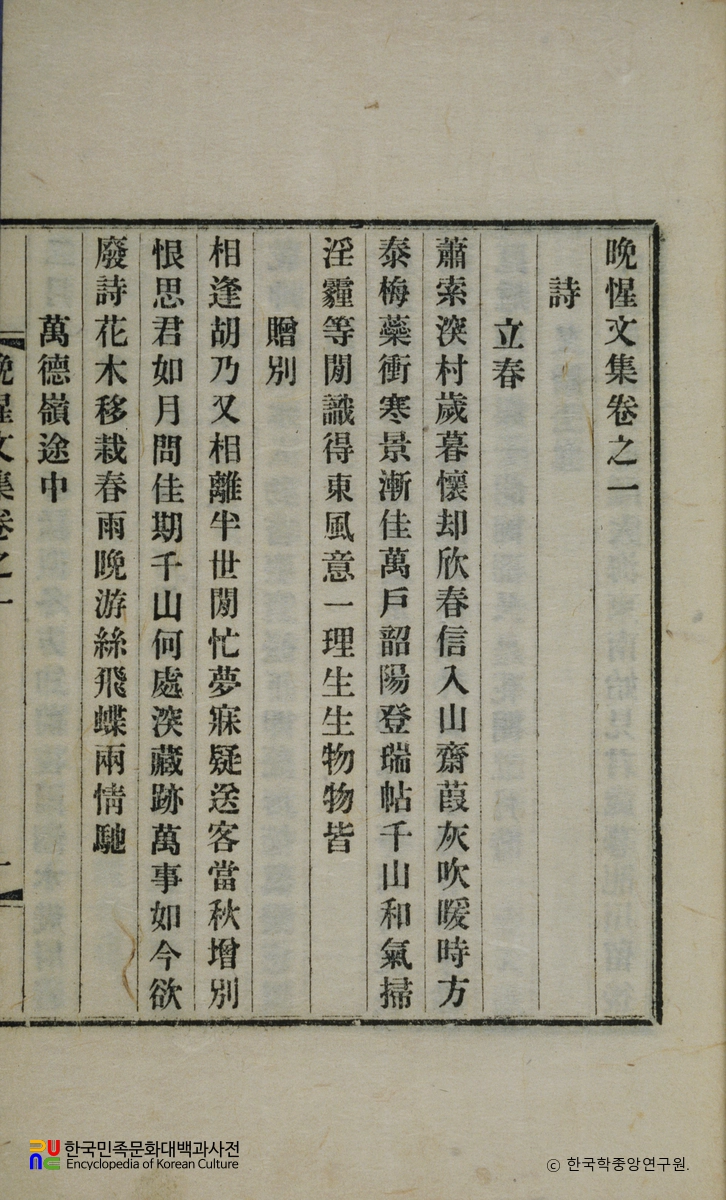 晩惺文集卷之一
詩
立春
蕭索深村歲暮懷却欣春信入山齋葭灰吹暖時方
泰梅藥衝寒景漸佳萬戶韶陽登瑞帖千山和氣掃
淫霾等閒識得東風意一理生生物物皆
贈別
相逢胡乃又相離半世閒忙夢寐疑送客當秋增別
恨思君如月問佳期千山何處深藏跡萬事如今欲
廢詩花木移栽春雨晩游絲飛蝶兩情馳
萬德嶺途中
晩惺文集卷之一
一
한국민족문화대백과사전
Encyclopedia of Korean Culture
ⓒ 한국학중앙연구원.